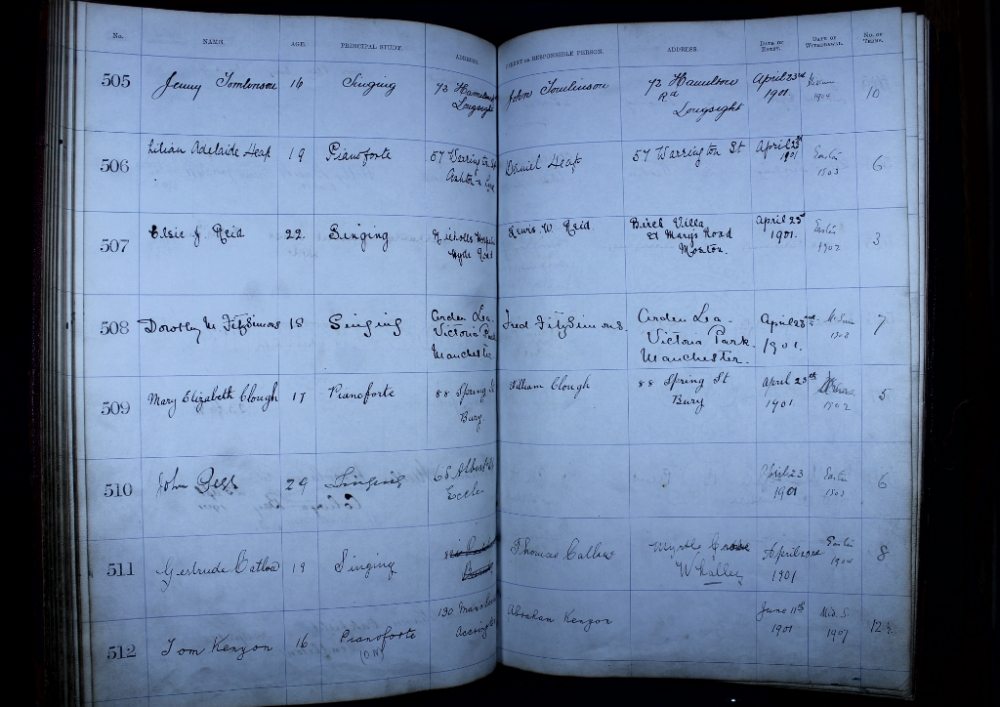 No. NAME. AGE. PRINCIPAL STUDY. ADDRESS. PARENT OR RESPONSIBLE PERSON. ADDRESS. DATE OF ENTRY. DATE OF WITHDRAWAL. No. OF TERMS.
505 Jenny Tomlinson 16 Singing 72 Hamilton Rd Longsight John Tomlinson 72 Hamilton Rd Longsight April 23rd 1901. 1904 10
506 Lilian Adelaide Heap 19 Pianoforte 57 Warrington St Ashton-u-Lyne Daniel Heap 57 Warrington St April 23rd 1901 Easter 1903 6
507 Elsie J. Reid 22. Singing Nicholls Hospital Hyde Road Lewis W. Reid. Birch Villa St Mary's Road Moston. April 23rd 1901. Easter 1902 3
508 Dorothy M FitzSimons 18 Singing Arden Lea. Victoria Park Manchester. Fred FitzSimons. Arden Lea. Victoria Park. Manchester. April 23rd 1901. 7
509 Mary Elizabeth Clough 17 Pianoforte 88 Spring St Bury William Clough 88 Spring St Bury April 23rd 1901 1902 5
510 John 29 Singing 68 Albert St Eccles April 23 1901 Easter 1903 6
511 Gertrude Catlow 19 Singing Thomas Catlow Myrtle Grove Whalley April 23rd 1901 Easter 1904 8
512 Tom Kenyon 16 Pianoforte 130 Accrington Abraham Kenyon June 11th 1901 Mid. S. 1907 12